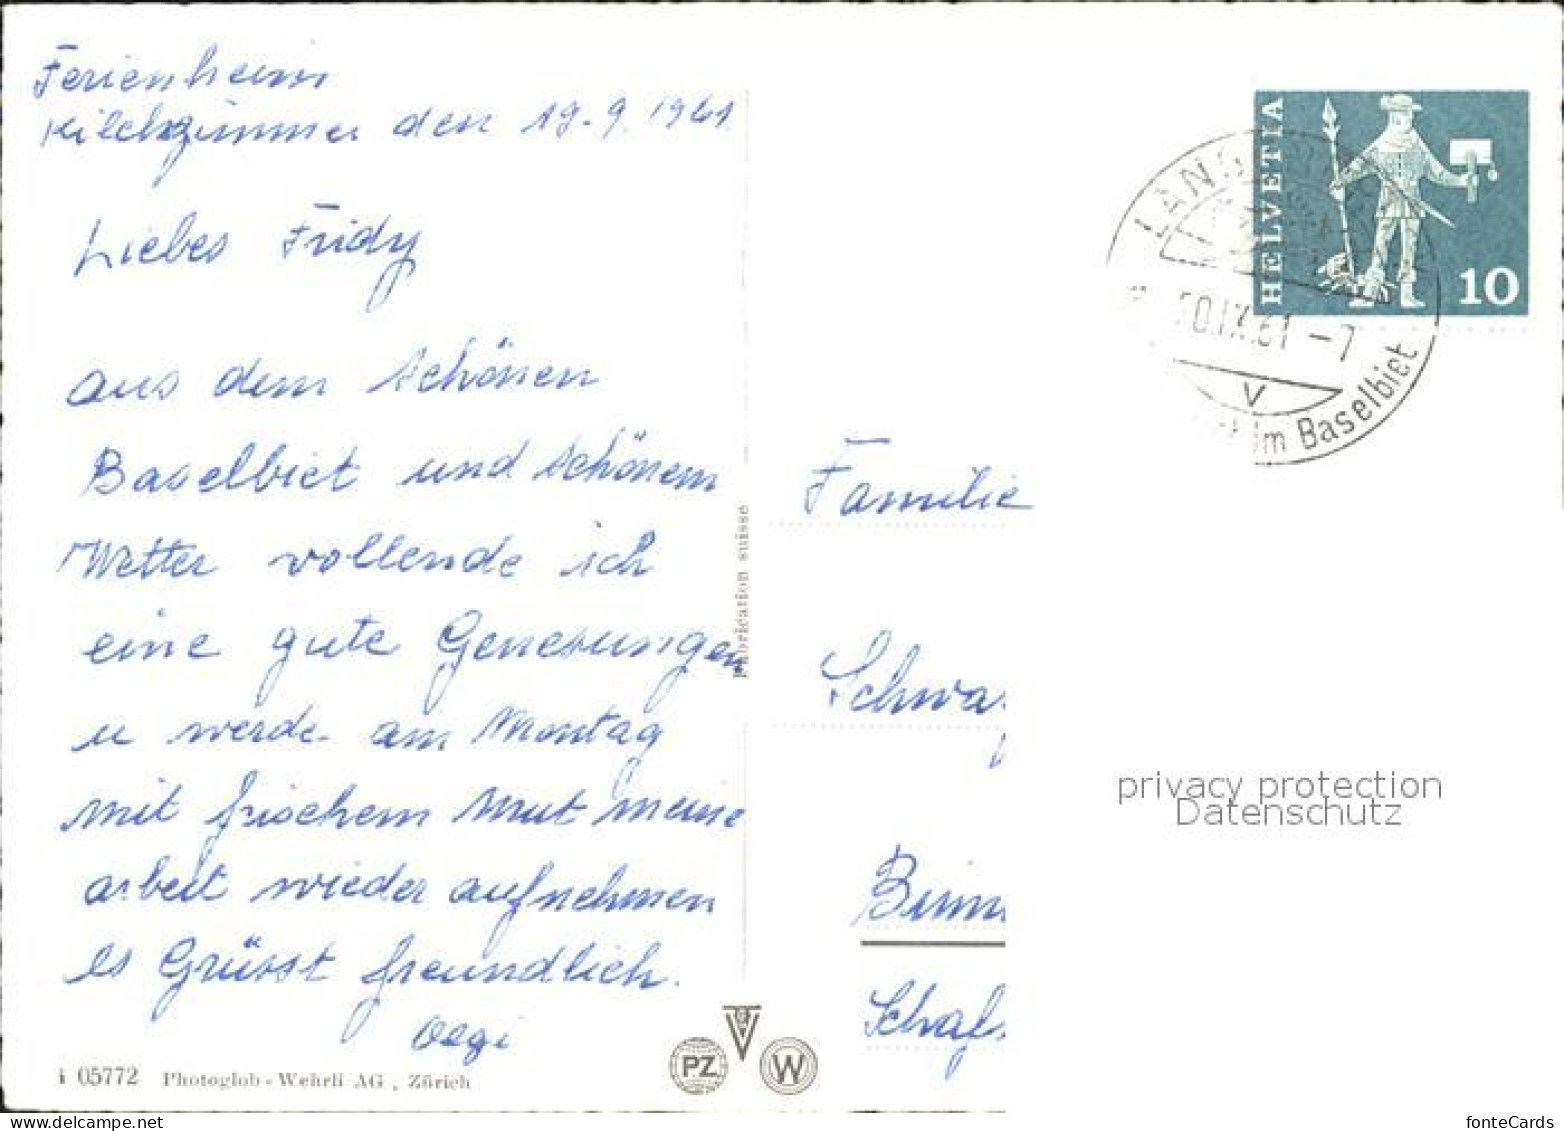 Ferienheim
Kilchzimmer den 19.9.1961
Liebes Fridy
aus dem schönen
Baselbiet und schönem
Wetter vollende ich
eine gute Genesungen
u werde am Montag
mit frischem Mut meine
arbeit wieder aufnehmen
es Grüsst freundlich.
i 05772 Photoglob-Wehrli AG, Zürich
Fabrication suisse
PZ
W
HELVETIA
10
LANG
0.IX.61 -7
V
im Baselbiet
Familie
Schwa
Binn
Schaf
privacy protection
Datenschutz
fonteCards